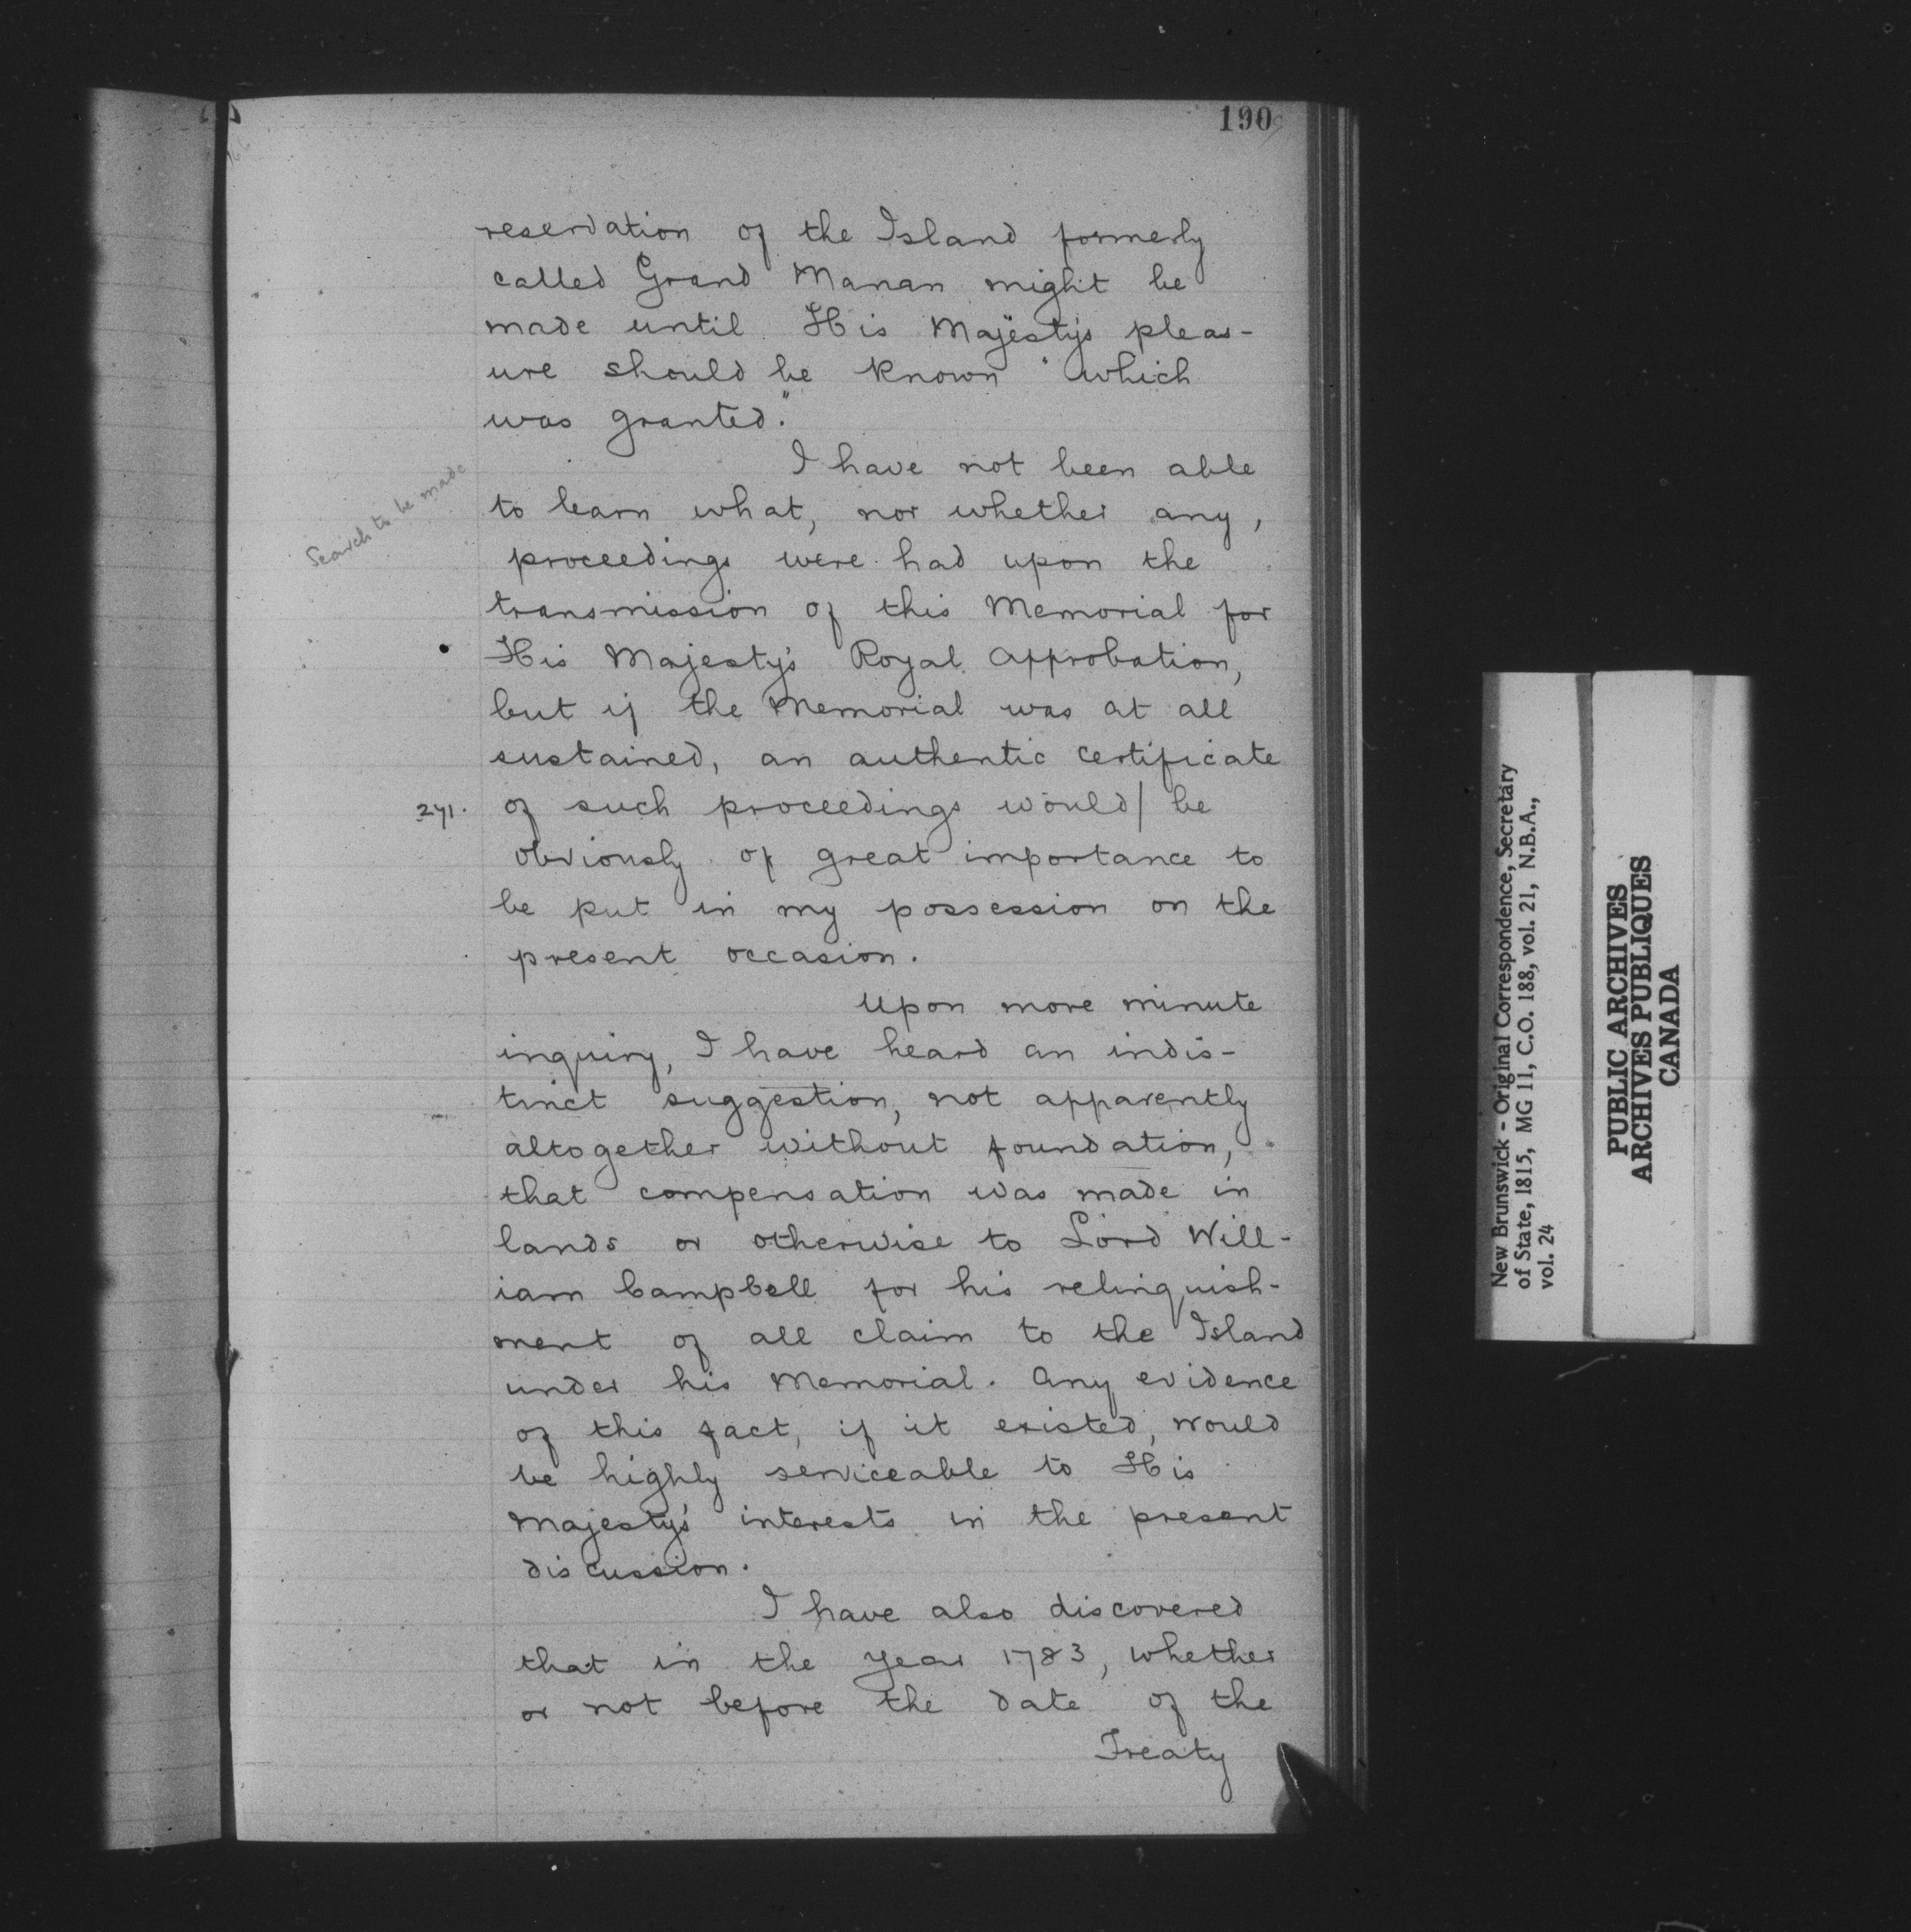 190
reservation of the Island formerly
called Grand Manan might be
made until His Majesty's pleas-
ure should be known "which
was granted."
I have not been able
to learn what, nor whether any,
Search to be made
proceedings were had upon the
transmission of this Memorial for
His Majesty's Royal Approbation,
but if the Memorial was at all
sustained, an authentic certificate
271.
of such proceedings would/ be
obviously of great importance to
be put in my possession on the
present occasion.
Upon more minute
inquiry, I have heard an indis-
tinct suggestion, not apparently
altogether without foundation,
that compensation was made in
lands or otherwise to Lord Will-
iam Campbell for his relinquish-
ment of all claim to the Island
under his Memorial. Any evidence
of this fact, if it existed, would
be highly serviceable to His
Majesty's interests in the present
discussion.
I have also discovered
that in the year 1783, whether
or not before the date of the
Treaty
New Brunswick - Original Correspondence, Secretary
of State, 1815, MG 11, C.O. 188, vol. 21, N.B.A.,
vol. 24
PUBLIC ARCHIVES
ARCHIVES PUBLIQUES
CANADA